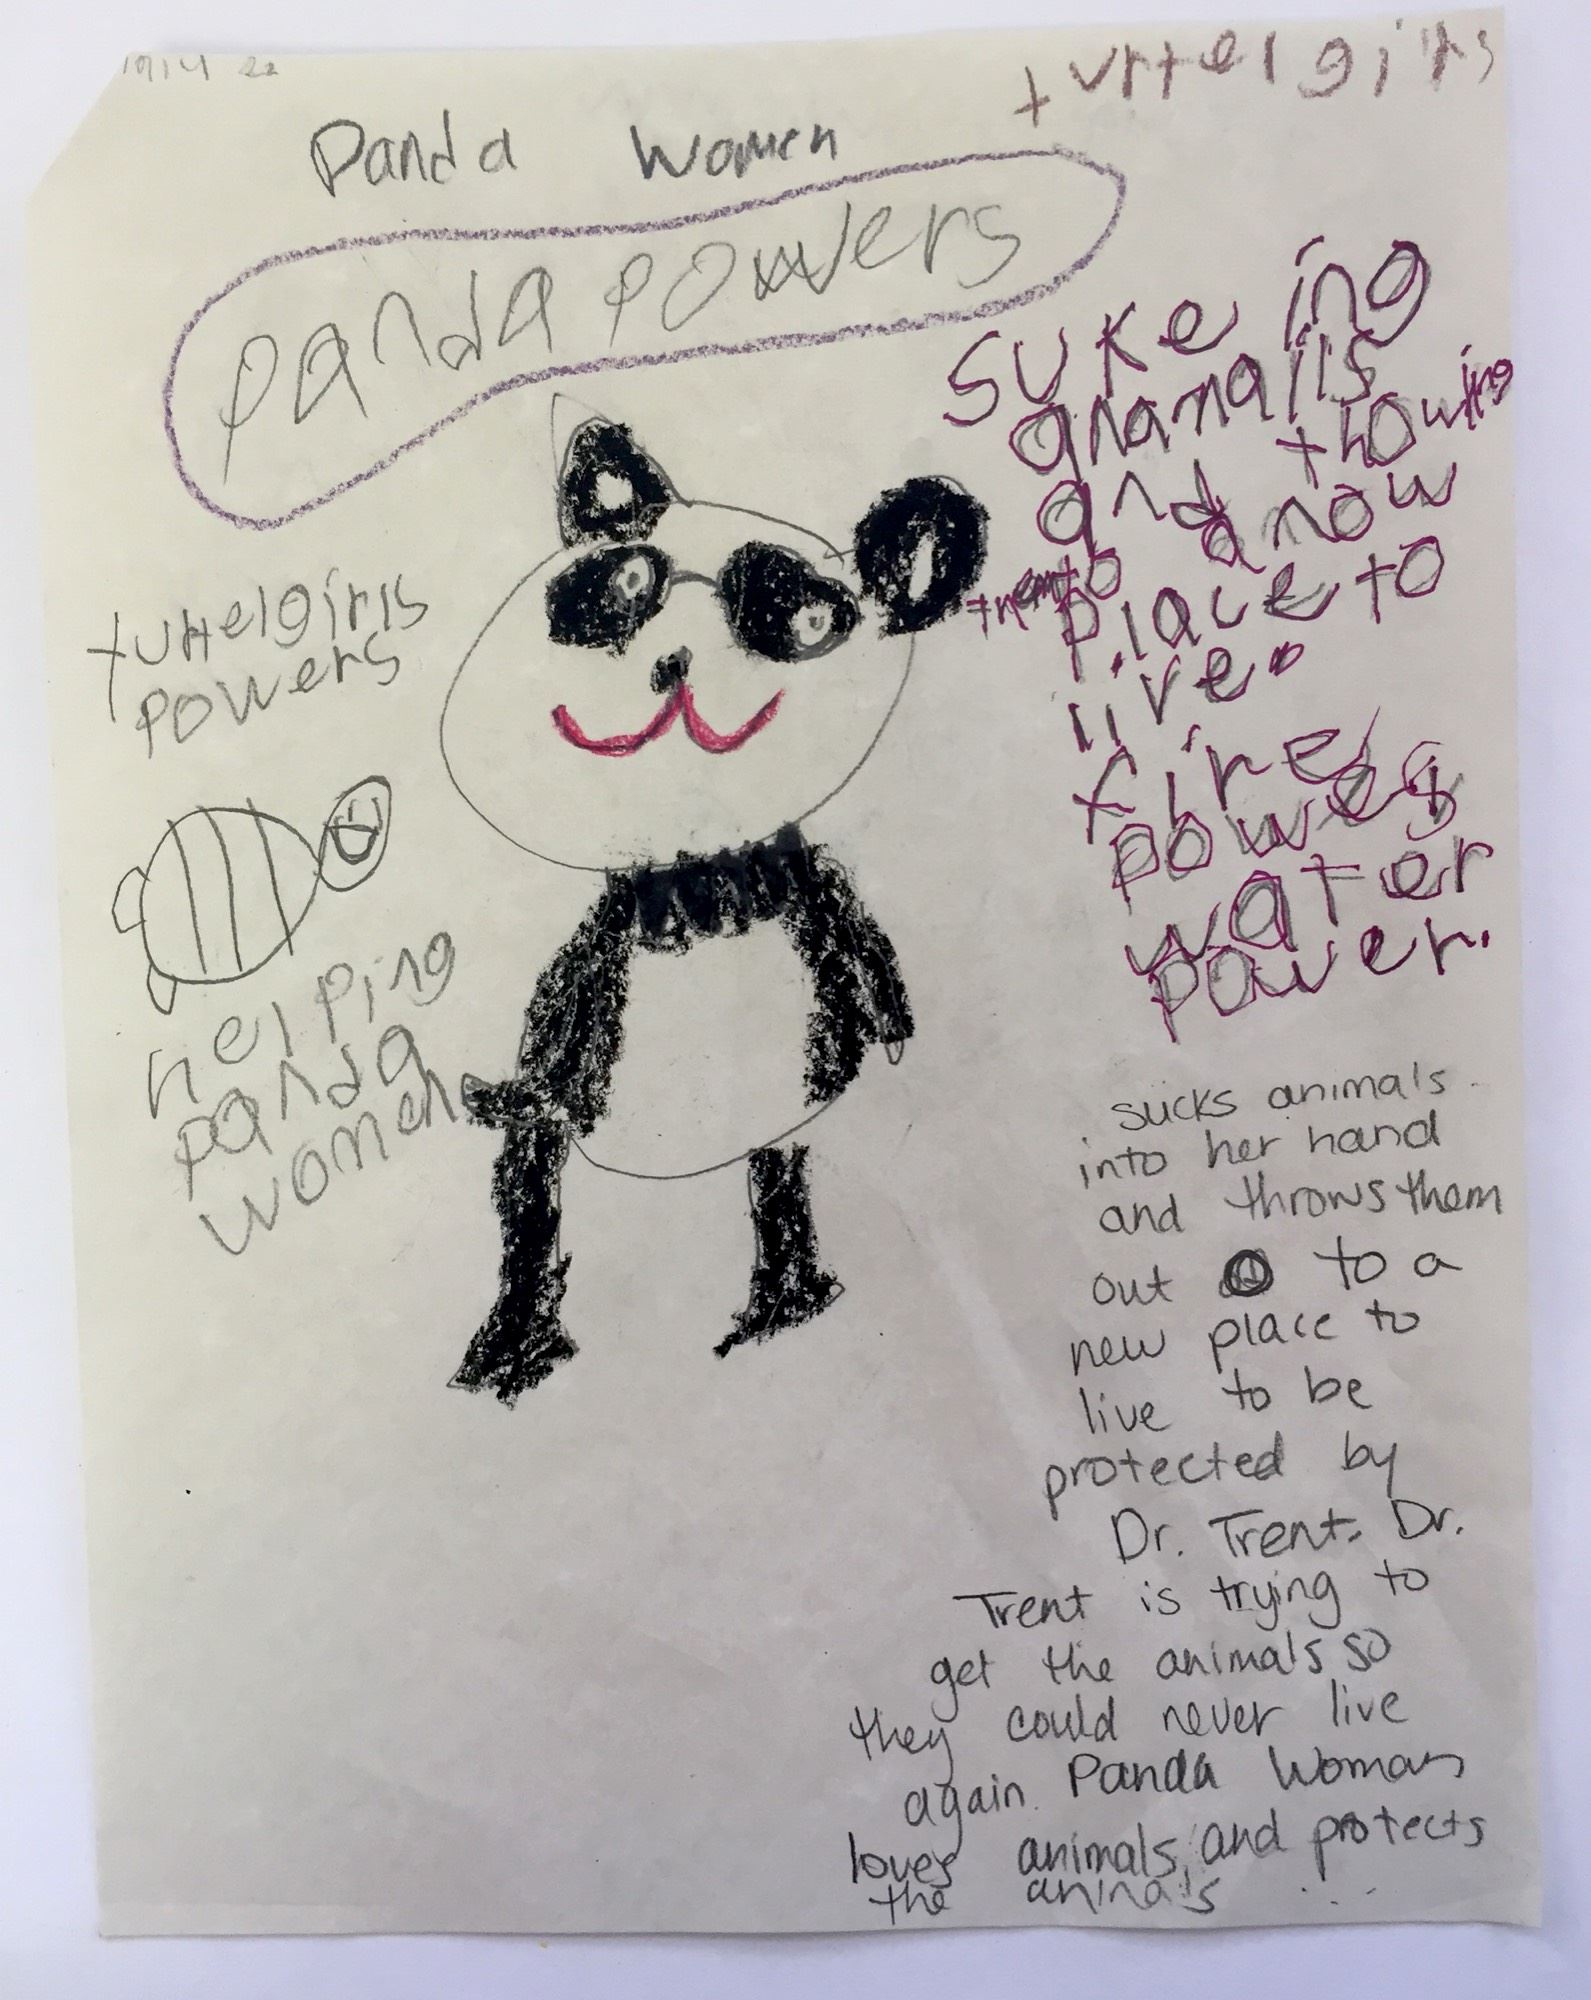 turtelgirls
Panda Women
Panda powers
suke ing
anamalls
and thowing
them to a now
place to
live.
fire
power
water
power.
turtelgirls
powers
helping
panda
women
sucks animals
into her hand
and throws them
out to a
new place to
live to be
protected by
Dr. Trent. Dr.
Trent is trying to
get the animals so
they could never live
again. Panda Woman
loves animals, and protects
the animals